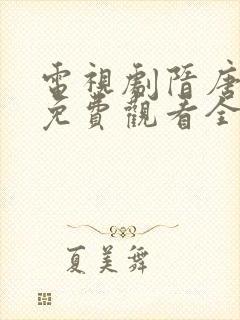 電視劇隋唐
免費觀看全
夏美舞